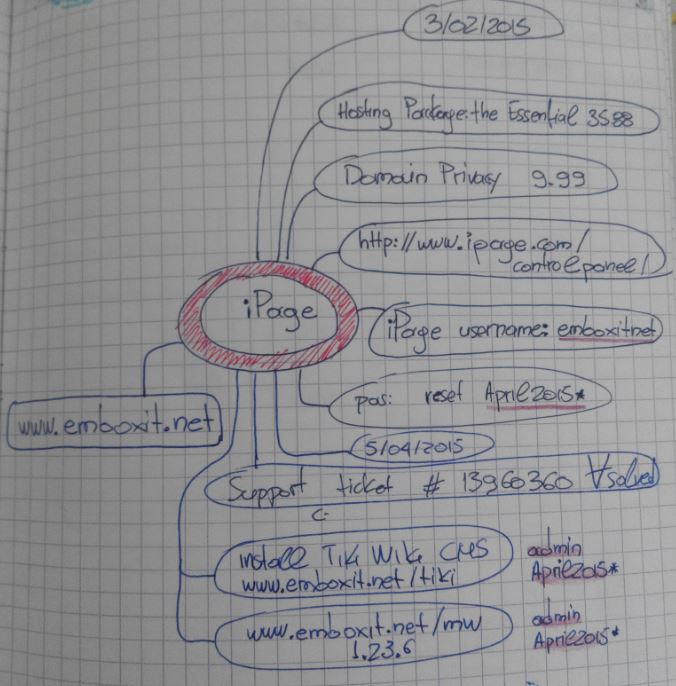 3/02/2015
Hosting Package: the Essential 35.88
Domain Privacy 9.99
http://www.ipage.com/
controlpanel/
iPage
iPage username: emboxitnet
pas: reset April2015*
www.emboxit.net
5/04/2015
Support ticket # 13960360 solved
install Tiki Wiki CMS
www.emboxit.net/tiki
admin
April2015*
www.emboxit.net/mw
1.23.6
admin
April2015*